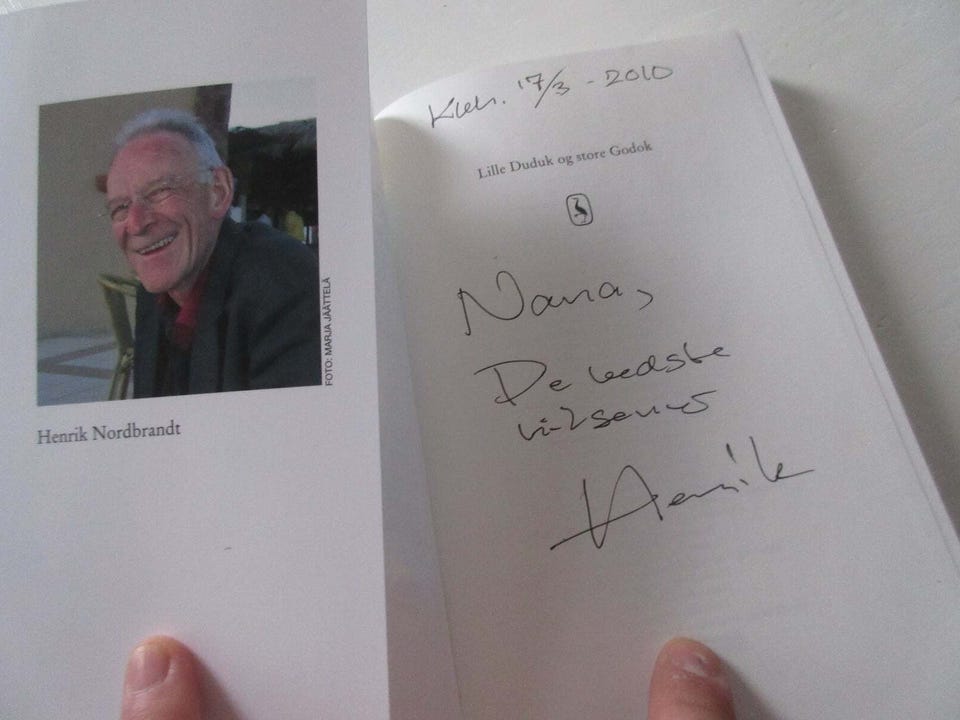 FOTO: MARJA JÄÄTTELÄ
Henrik Nordbrandt
Kbh. 17/3 - 2010
Lille Duduk og store Godok
Nana,
De bedste
hilsener
Henrik